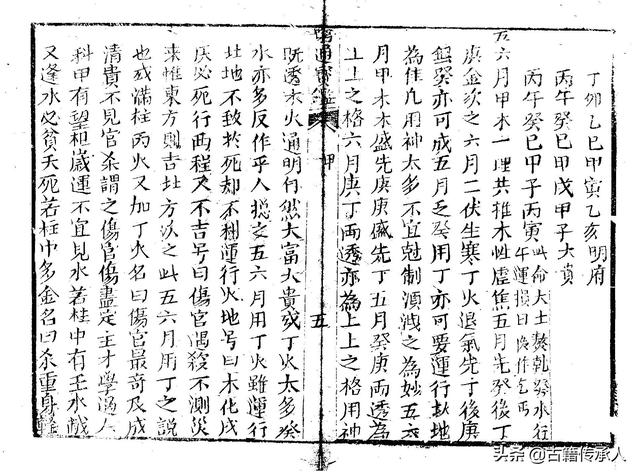 丁卯乙巳甲寅乙亥明府
丙午癸巳甲戌甲子大貴
丙午癸巳甲子丙寅
此命大士 乾癸水行
午運損目後作乞丐
五六月甲木一理共推木性虚焦五月先癸後丁
庚金次之六月二伏生寒丁火退氣先丁後庚
無癸亦可或五月乏癸用丁亦可要運行北地
為佳凡用神太多不宜尅制須洩之為妙五六
月甲木木盛先庚庚盛先丁五月癸庚兩透為
上上之格六月庚丁兩透亦為上上之格用神
窮通寶鑑
甲
五
既透木火通明自然大富大貴或丁火太多癸
水亦多反作平人總之五六月用丁火雖運行
北地不致於死却不利運行火地号曰木化成
灰必死行西程又不吉号曰傷官遇殺不測灾
来惟東方則吉北方次之此五六月用丁之説
也或滿柱丙火又加丁火名曰傷官最奇反成
清貴不見官杀謂之傷官傷盡定主才學過人
科甲有望 歲運不宜見水若柱中有壬水
又逢水必貧夭死若柱中多金名曰杀重身輕
头条@古籍传承人